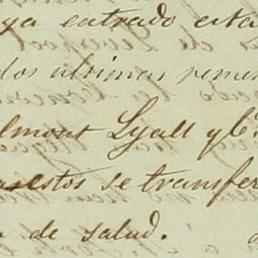 ya entrado esta
dos últimas reme
lmont Lyall y Cª
estos se transfer
de salud.